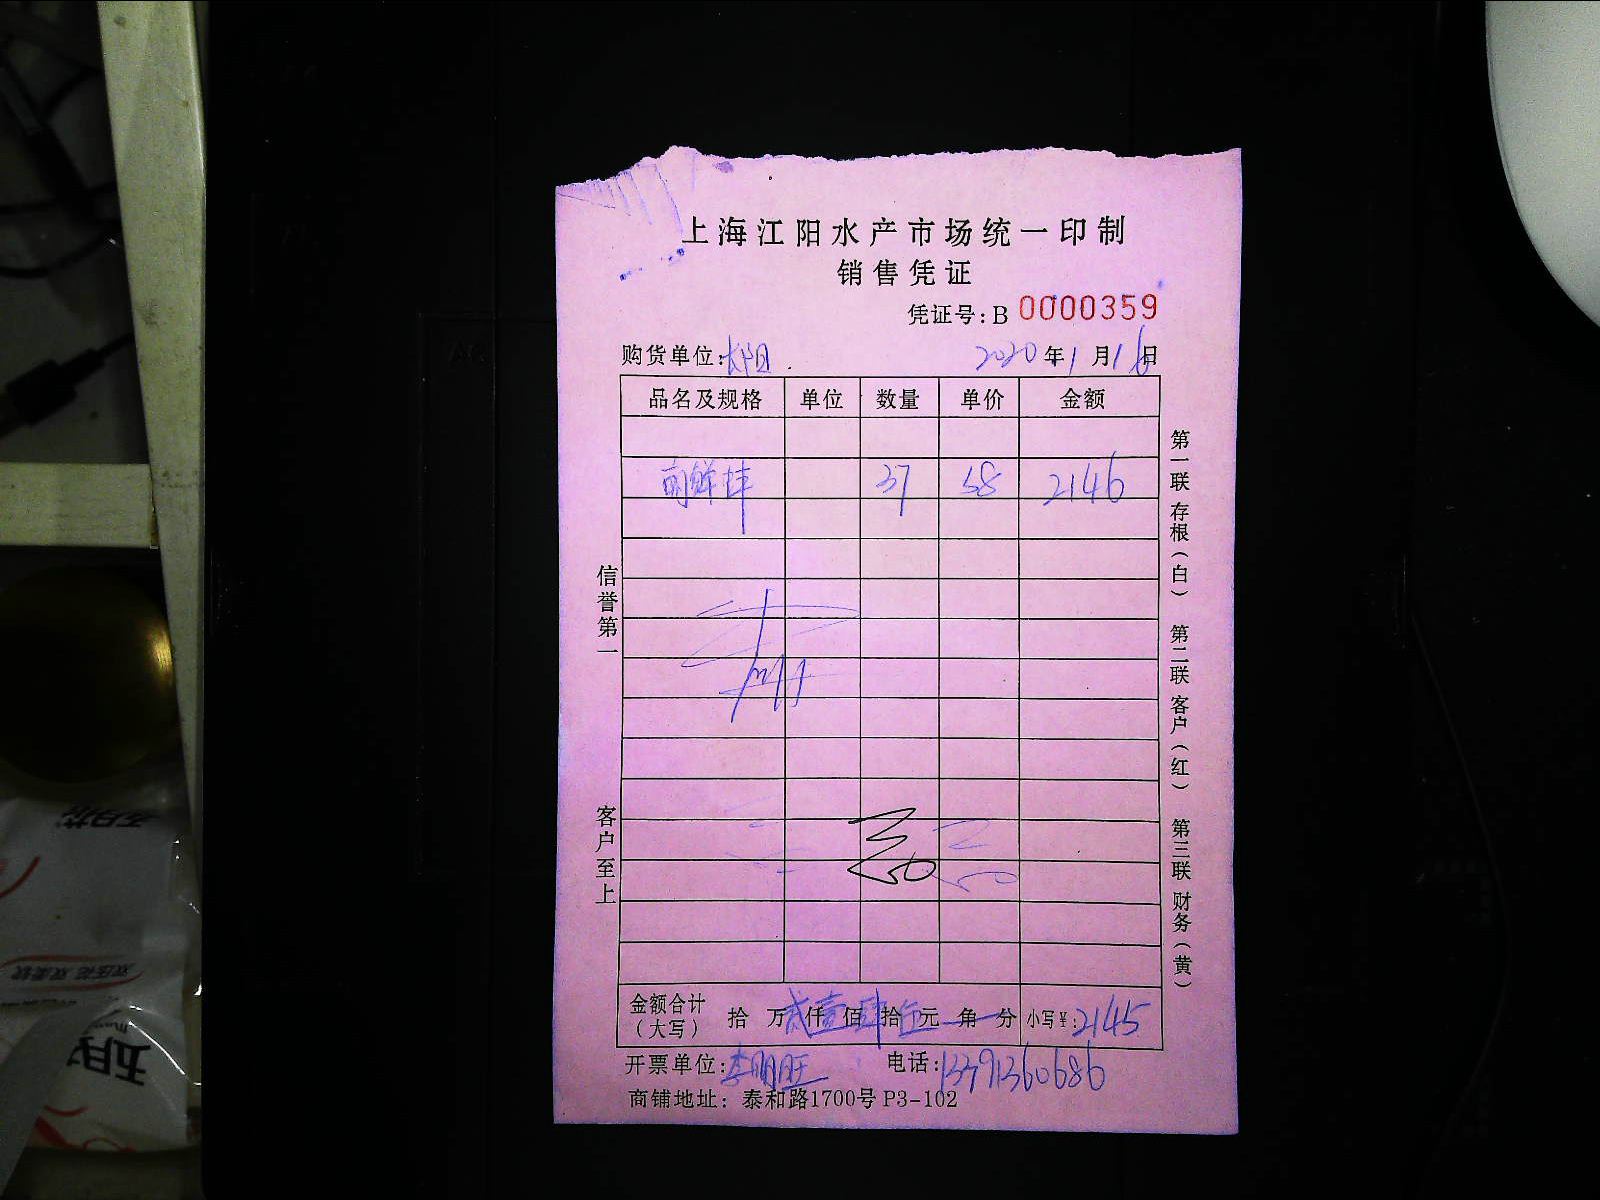 上海江阳水产市场统一印制
销售凭证
凭证号:B 0000359
购货单位: 2020年1月16日
品名及规格 单位 数量 单价 金额
37 58 2146
信誉第一
客户至上
第一联 存根(白) 第二联 客户(红) 第三联 财务(黄)
金额合计(大写) 拾 万贰仟壹佰肆拾伍元 角 分 小写¥:2145
开票单位:李明旺 电话:13791360686
商铺地址: 泰和路1700号 P3-102
五月花
双压花 双柔软
五月